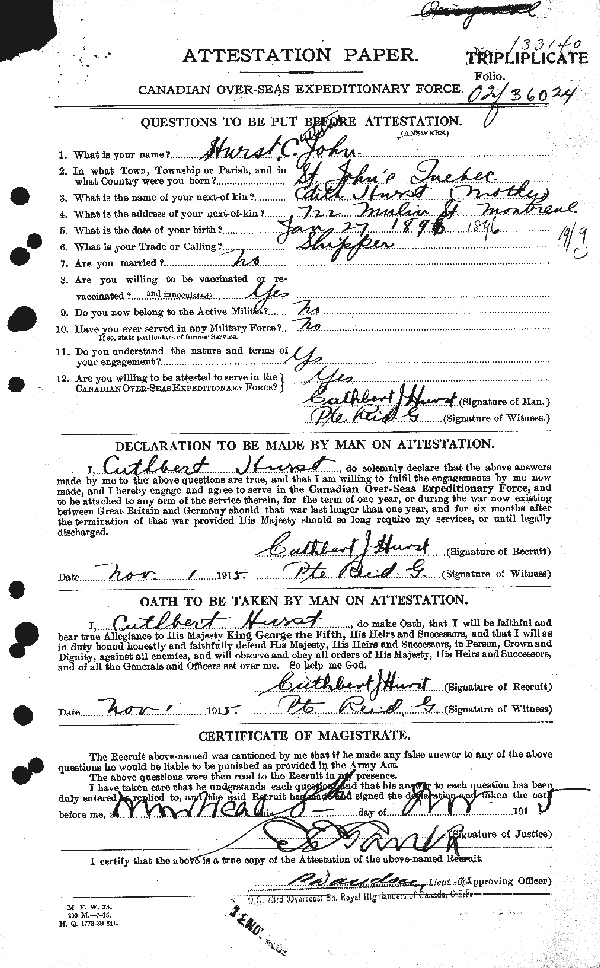 133140
ATTESTATION PAPER.
TRIPLIPLICATE
Folio.
CANADIAN OVER-SEAS EXPEDITIONARY FORCE.
02/36024
QUESTIONS TO BE PUT BEFORE ATTESTATION.
(ANSWERS)
1. What is your name? Hurst, C. John
2. In what Town, Township or Parish, and in St John's Quebec
what Country were you born?
3. What is the name of your next-of-kin? Edith Hurst (Mother)
4. What is the address of your next-of-kin? 722 St Montreal
5. What is the date of your birth? Jan 27 1896 1896
6. What is your Trade or Calling? Shipper 19/9
7. Are you married? no
8. Are you willing to be vaccinated or re-
vaccinated? and inoculated? Yes
9. Do you now belong to the Active Militia? No
10. Have you ever served in any Military Force? No
If so, state particulars of former Service.
11. Do you understand the nature and terms of Yes
your engagement?
12. Are you willing to be attested to serve in the Yes
CANADIAN OVER-SEAS EXPEDITIONARY FORCE?
Cuthbert J Hurst (Signature of Man.)
Pte Reid G (Signature of Witness.)
DECLARATION TO BE MADE BY MAN ON ATTESTATION.
I, Cuthbert Hurst, do solemnly declare that the above answers
made by me to the above questions are true, and that I am willing to fulfil the engagements by me now
made, and I hereby engage and agree to serve in the Canadian Over-Seas Expeditionary Force, and
to be attached to any arm of the service therein, for the term of one year, or during the war now existing
between Great Britain and Germany should that war last longer than one year, and for six months after
the termination of that war provided His Majesty should so long require my services, or until legally
discharged.
Cuthbert J Hurst (Signature of Recruit)
Date Nov 1 1915 Pte Reid G. (Signature of Witness)
OATH TO BE TAKEN BY MAN ON ATTESTATION.
I, Cuthbert Hurst, do make Oath, that I will be faithful and
bear true Allegiance to His Majesty King George the Fifth, His Heirs and Successors, and that I will as
in duty bound honestly and faithfully defend His Majesty, His Heirs and Successors, in Person, Crown and
Dignity, against all enemies, and will observe and obey all orders of His Majesty, His Heirs and Successors,
and of all the Generals and Officers set over me. So help me God.
Cuthbert J Hurst (Signature of Recruit)
Date Nov 1 1915 Pte Reid, G (Signature of Witness)
CERTIFICATE OF MAGISTRATE.
The Recruit above-named was cautioned by me that if he made any false answer to any of the above
questions he would be liable to be punished as provided in the Army Act.
The above questions were then read to the Recruit in my presence.
I have taken care that he understands each question, and that his answer to each question has been
duly entered as replied to, and the said Recruit has made and signed the declaration and taken the oath
before me, at Montreal this day of Nov 1915
(Signature of Justice)
I certify that the above is a true copy of the Attestation of the above-named Recruit
Lieut. (Approving Officer)
O.C. 73rd (Overseas) Bn. Royal Highlanders of Canada, C.E.F.
M. F. W. 23.
H. Q. 1772-39-841.
2 NOV